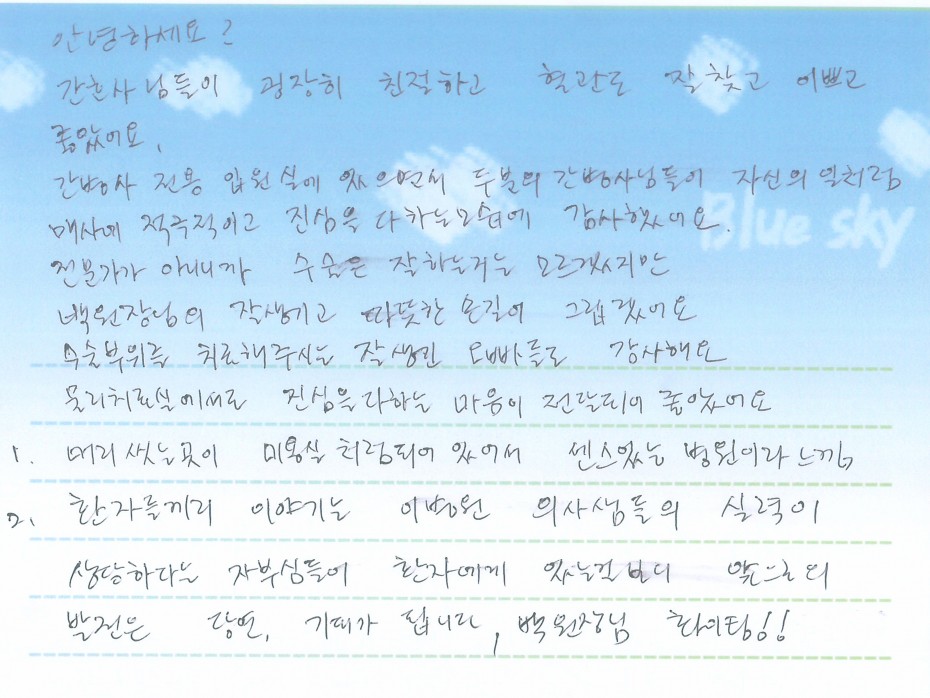 안녕하세요?
간호사님들이 굉장히 친절하고 혈관도 잘찾고 이쁘고
좋았어요.
간병사 전용 입원실에 있으면서 두분의 간병사님들이 자신의 일처럼
매사에 적극적이고 진심을 다하는모습에 감사했어요.
Blue sky
전문가가 아니니까 수술은 잘하는거는 모르겠지만
백원장님의 잘생기고 따뜻한 손길이 그립겠어요
수술부위를 치료해주시는 잘생긴 오빠들도 감사해요
물리치료실에서도 진심을다하는 마음이 전달되어 좋았어요
1. 머리씻는곳이 미용실처럼되어 있어서 센스있는 병원이라 느낌
2. 환자들끼리 이야기는 이병원 의사샘들의 실력이
상당하다는 자부심들이 환자에게 있는걸보니 앞으로의
발전은 당연, 기대가 됩니다, 백원장님 화이팅!!